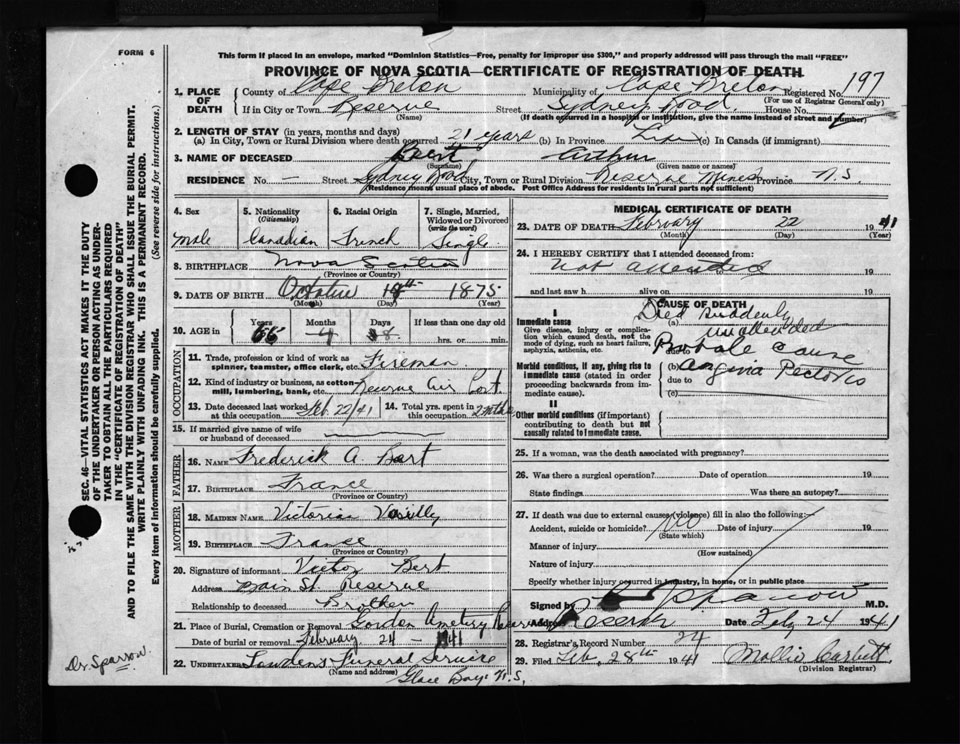 FORM 6
This form if placed in an envelope, marked "Dominion Statistics—Free, penalty for improper use $300," and properly addressed will pass through the mail "FREE"
PROVINCE OF NOVA SCOTIA—CERTIFICATE OF REGISTRATION OF DEATH
197
1. PLACE OF DEATH County of Cape Breton Municipality of Cape Breton Registered No.
(For use of Registrar General only)
If in City or Town Reserve Street Sydney Road House No.
(Name) (If death occurred in a hospital or institution, give the name instead of street and number)
2. LENGTH OF STAY (in years, months and days)
(a) In City, Town or Rural Division where death occurred 21 years (b) In Province Life (c) In Canada (if immigrant)
3. NAME OF DECEASED Bert Arthur
(Surname) (Given name or names)
RESIDENCE No. — Street Sydney Road City, Town or Rural Division Reserve Mines Province N.S.
(Residence means usual place of abode. Post Office Address for residents in rural parts not sufficient)
SEC. 46—VITAL STATISTICS ACT MAKES IT THE DUTY
OF THE UNDERTAKER OR PERSON ACTING AS UNDER-
TAKER TO OBTAIN ALL THE PARTICULARS REQUIRED
IN THE "CERTIFICATE OF REGISTRATION OF DEATH"
AND TO FILE THE SAME WITH THE DIVISION REGISTRAR WHO SHALL ISSUE THE BURIAL PERMIT.
WRITE PLAINLY WITH UNFADING INK. THIS IS A PERMANENT RECORD.
Every item of Information should be carefully supplied. (See reverse side for instructions.)
Dr. Sparrow.
4. Sex 5. Nationality (Citizenship) 6. Racial Origin 7. Single, Married, Widowed or Divorced (write the word)
Male Canadian French Single
8. BIRTHPLACE Nova Scotia
(Province or Country)
9. DATE OF BIRTH October 14th 1875
(Month) (Day) (Year)
10. AGE in Years Months Days If less than one day old
4 8 hrs. or min.
OCCUPATION
11. Trade, profession or kind of work as spinner, teamster, office clerk, etc. Fireman
12. Kind of industry or business, as cotton-mill, lumbering, bank, etc. Reserve Air Port
13. Date deceased last worked at this occupation Feb 22/41 14. Total yrs. spent in this occupation
15. If married give name of wife or husband of deceased
FATHER
16. NAME Frederick A. Bert
17. BIRTHPLACE France
(Province or Country)
MOTHER
18. MAIDEN NAME Victorine
19. BIRTHPLACE France
(Province or Country)
20. Signature of informant Victor Bert
Address Main St. Reserve
Relationship to deceased Brother
21. Place of Burial, Cremation or Removal Cemetery Reserve
Date of burial or removal February 24 - 1941
22. UNDERTAKER Funeral Service
(Name and address)
Glace Bay N.S.
MEDICAL CERTIFICATE OF DEATH
23. DATE OF DEATH February 22 1941
(Month) (Day) (Year)
24. I HEREBY CERTIFY that I attended deceased from:
not attended 19
and last saw h alive on 19
CAUSE OF DEATH
I
Immediate cause
Give disease, injury or complication which caused death, not the mode of dying, such as heart failure, asphyxia, asthenia, etc.
(a) Died suddenly
unattended
due to Probable cause
Morbid conditions, if any, giving rise to immediate cause (stated in order proceeding backwards from immediate cause).
(b) Angina Pectoris
due to
(c)
II
Other morbid conditions (if important) contributing to death but not causally related to Immediate cause.
25. If a woman, was the death associated with pregnancy?
26. Was there a surgical operation? Date of operation 19
State findings Was there an autopsy?
27. If death was due to external causes (violence) fill in also the following:
Accident, suicide or homicide? no Date of injury 19
(State which)
Manner of injury
(How sustained)
Nature of injury
Specify whether injury occurred in industry, in home, or in public place
Signed by Sparrow M.D.
Address Reserve Date Feb 24 1941
28. Registrar's Record Number 24
29. Filed Feb. 28th 1941 Mollie Corbett
(Division Registrar)